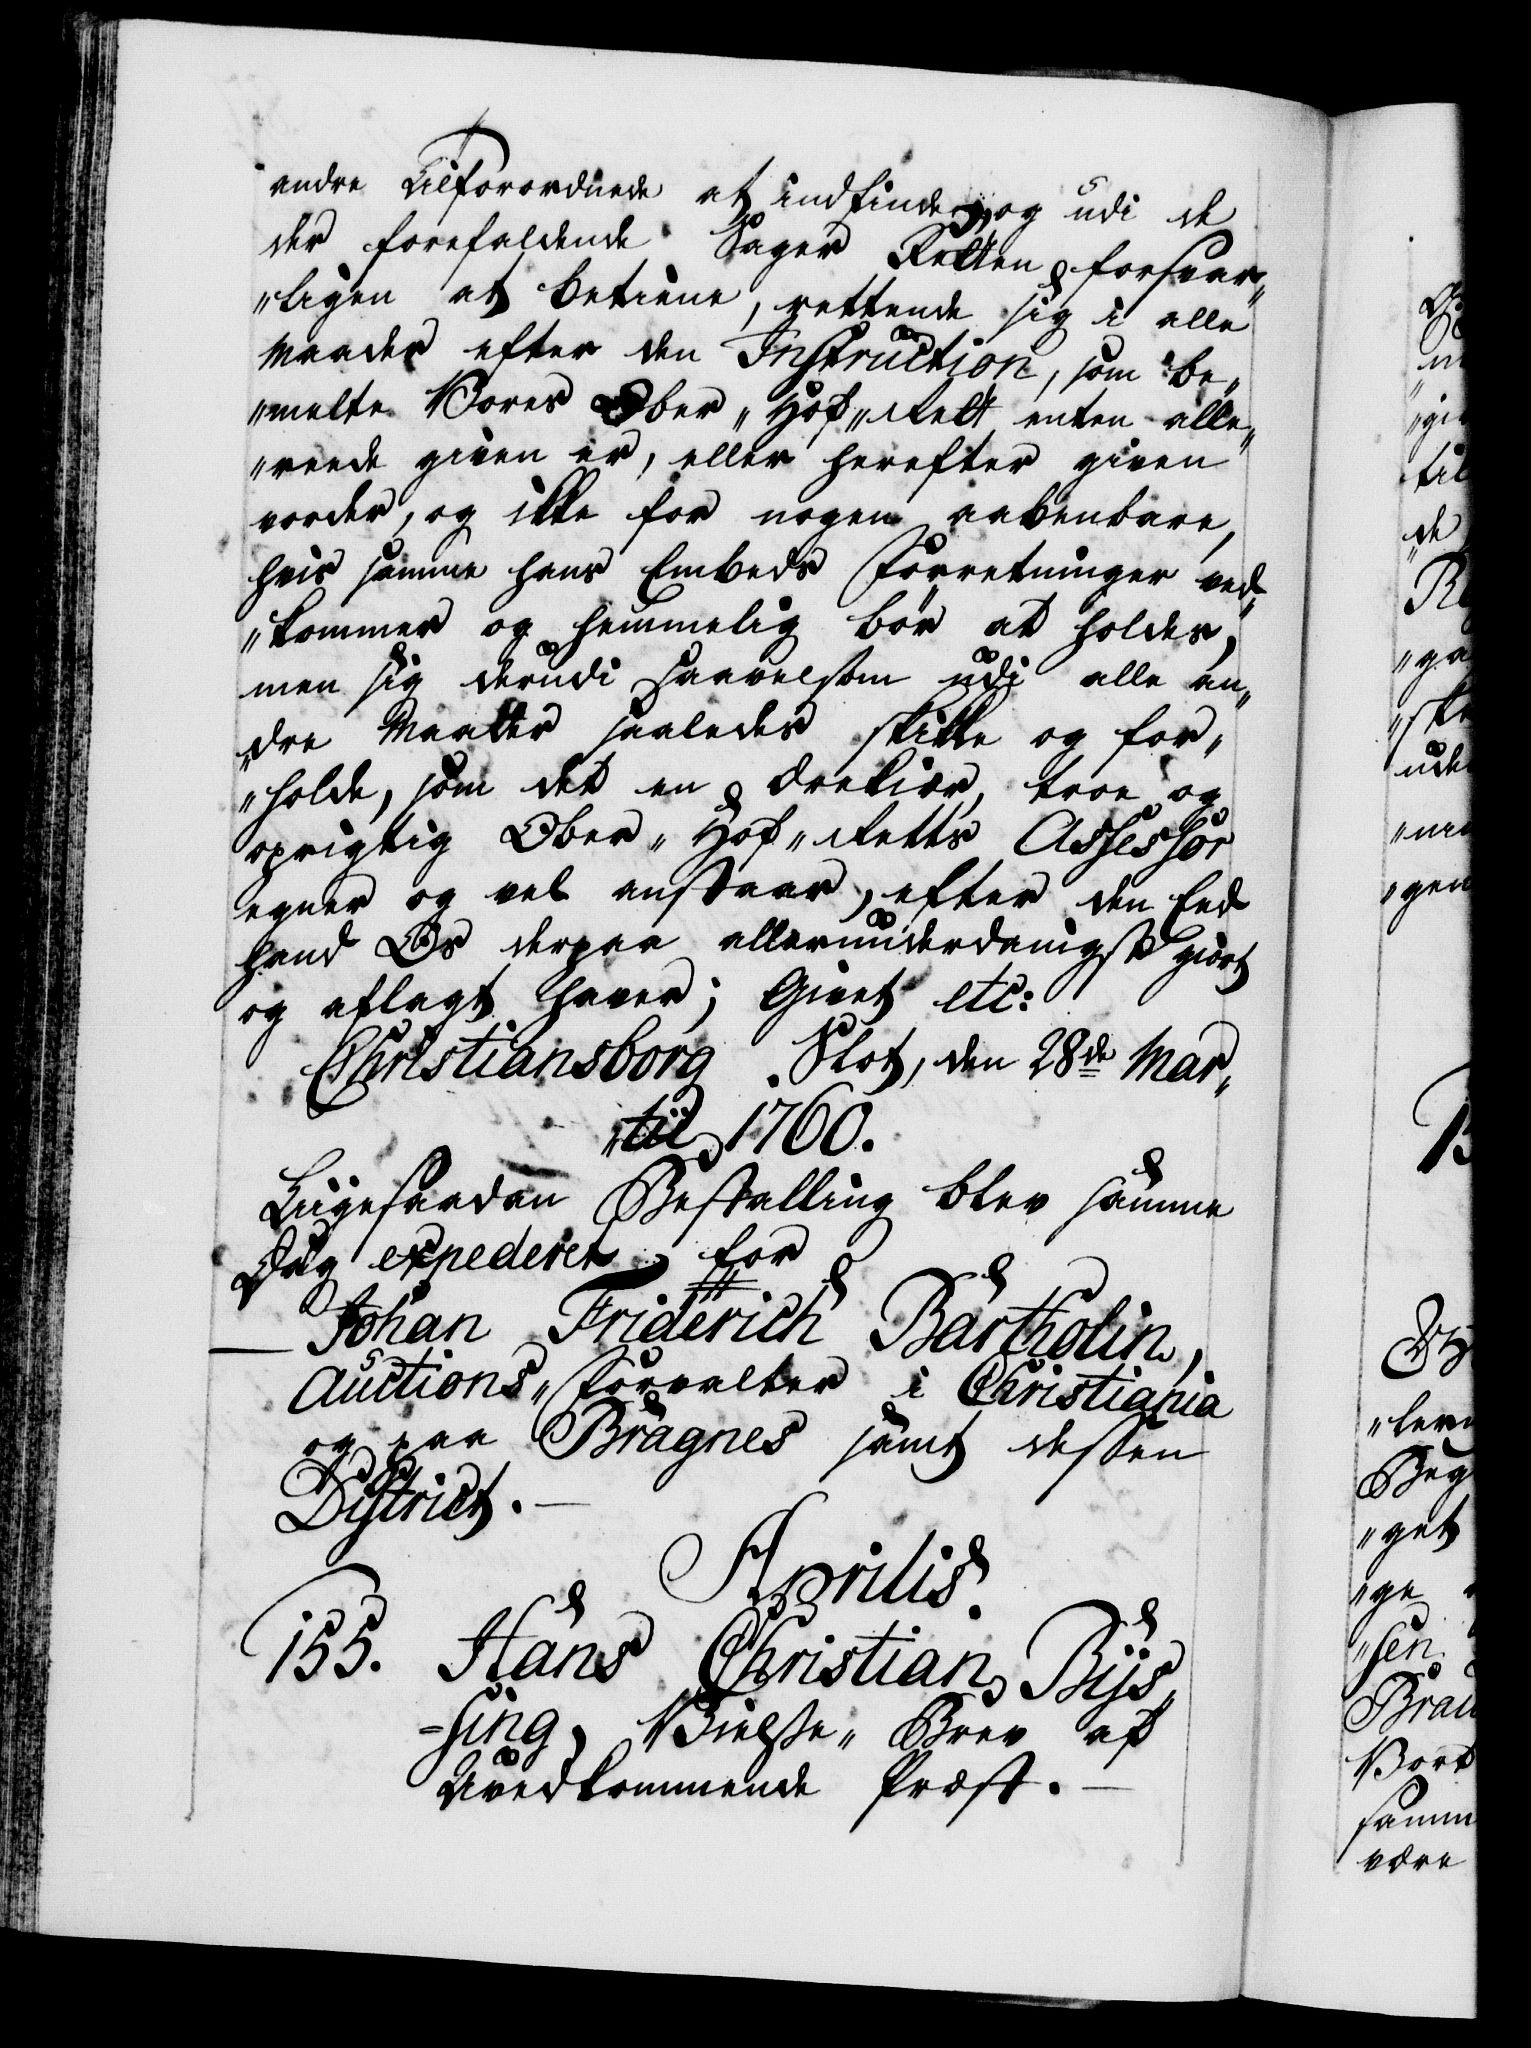 andre Tilforordnede at indfinde, og udi de
der forefaldende Sager Retten forsvar„
„ligen at betiene, rettende sig i alle
Maader efter den Instruction, som be„
„melte Vores Ober„Hof„Rett enten alle„
„reede given er, eller herefter given
vorder, og ikke for nogen aabenbare,
hvis samme hans Embeds Forretninger ved„
„kommer og hemmelig bør at holdes,
men sig derudi saavelsom udi alle an„
„dre Maader saaledes skikke og for„
„holde, som det en ærekiær, troe og
oprigtig Ober„Hof„Retts Assessor
egner og vel anstaar, efter den Eed
hand Os derpaa allerunderdanigst giort
og aflagt haver; Givet etc:
Christiansborg Slot, den 28de Mar„
„tii 1760.
Liigesaadan Bestalling blev samme
Dag expederet for
Johan Friderich Bartholin,
Auctions„Forvalter i Christiania
og paa Bragnes samt dessen
District.
Aprilis.
155. Hans Christian Bÿs„
„sing, Vielse„Brev af
Uvedkommende Præst.